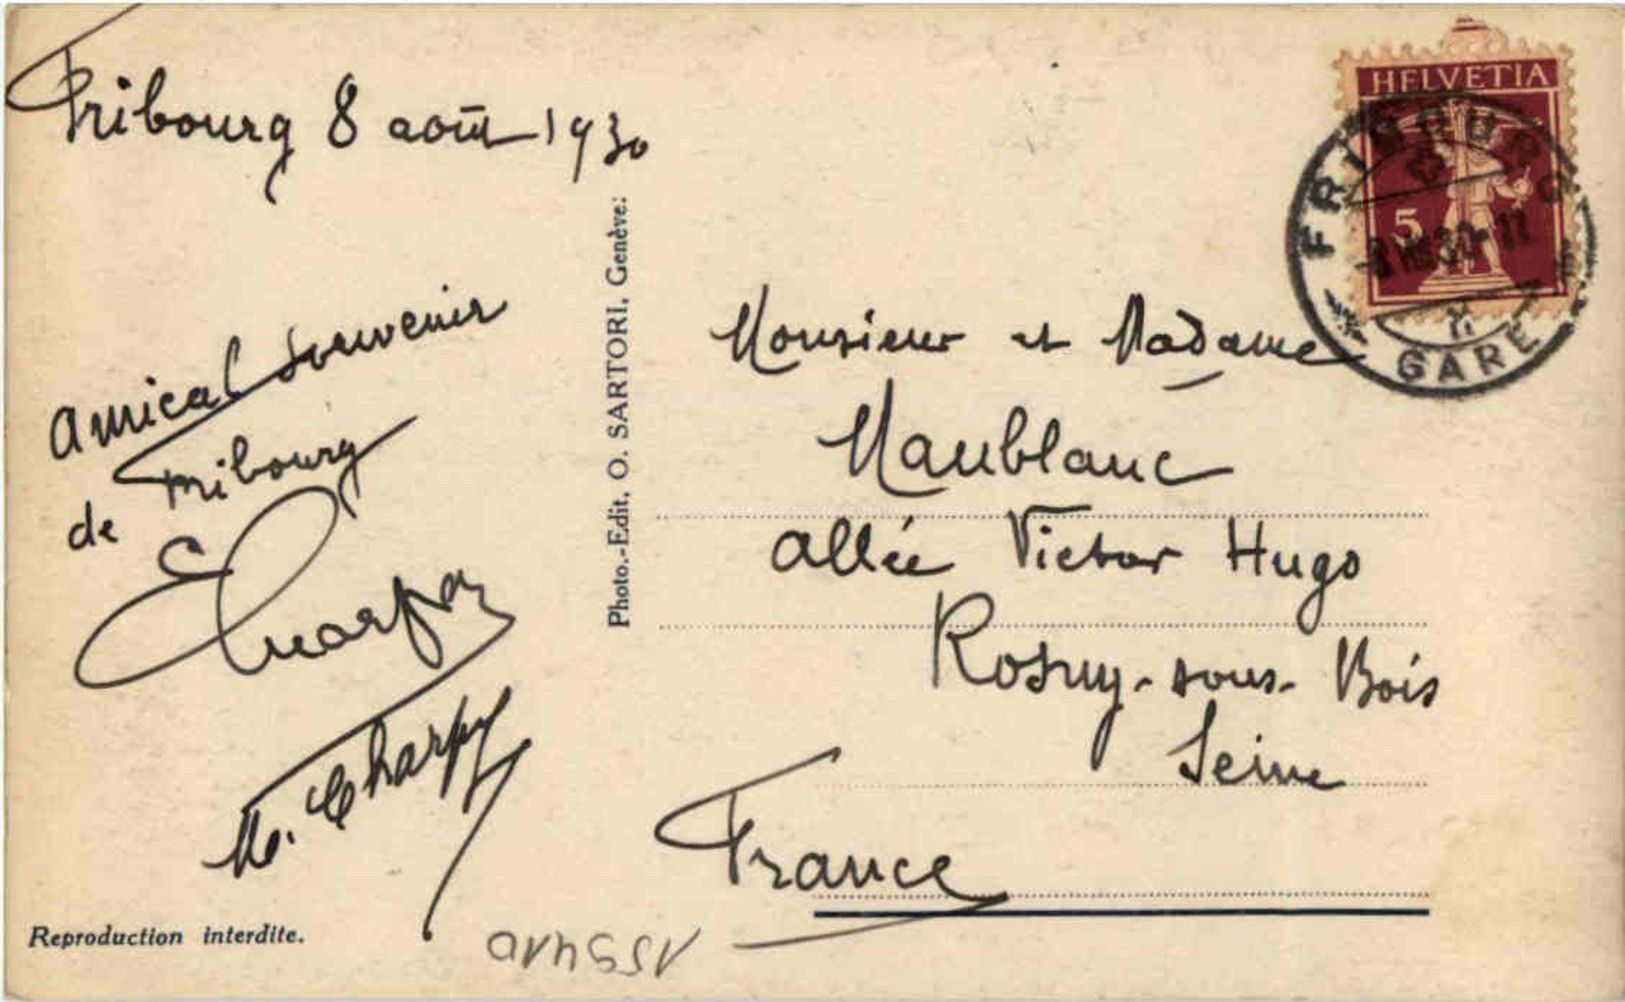 Fribourg 8 août 1930
amical souvenir
de Fribourg
Charpy
M. Charpy
Reproduction interdite.
Photo.-Edit. O. SARTORI, Genève:
HELVETIA
5
FRIBOURG
-8.VIII.30-11
GARE
Monsieur et Madame
Maublanc
allée Victor Hugo
Rosny-sous-Bois
Seine
France